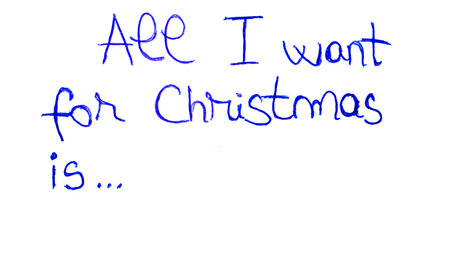 All I want
for Christmas
is...